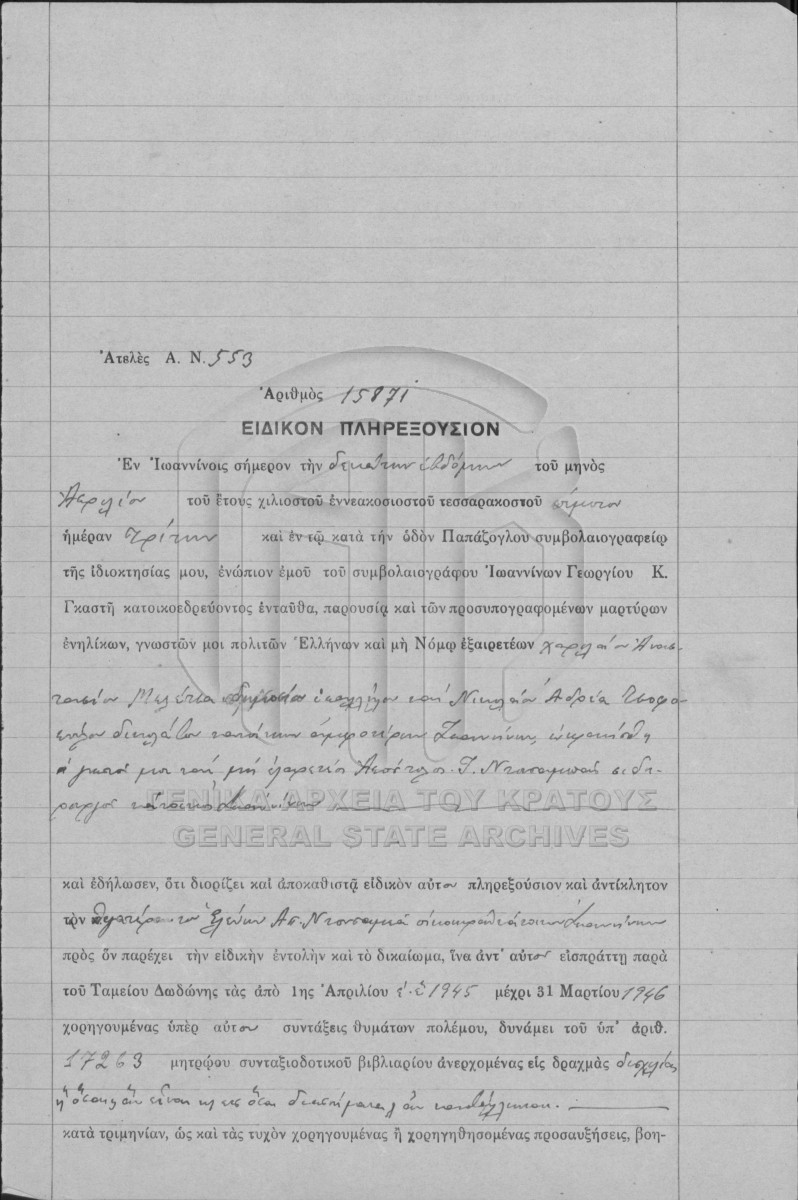 Ἀτελὲς Α. Ν. 553
Ἀριθμὸς 15871
ΕΙΔΙΚΟΝ ΠΛΗΡΕΞΟΥΣΙΟΝ
Ἐν Ἰωαννίνοις σήμερον τὴν δεκάτην ἑβδόμην τοῦ μηνὸς
Ἀπριλίου τοῦ ἔτους χιλιοστοῦ ἐννεακοσιοστοῦ τεσσαρακοστοῦ πέμπτου
ἡμέραν Τρίτην καὶ ἐν τῷ κατὰ τὴν ὁδὸν Παπάζογλου συμβολαιογραφείῳ
τῆς ἰδιοκτησίας μου, ἐνώπιον ἐμοῦ τοῦ συμβολαιογράφου Ἰωαννίνων Γεωργίου Κ.
Γκαστῆ κατοικοεδρεύοντος ἐνταῦθα, παρουσίᾳ καὶ τῶν προσυπογραφομένων μαρτύρων
ἐνηλίκων, γνωστῶν μοι πολιτῶν Ἑλλήνων καὶ μὴ Νόμῳ ἐξαιρετέων Χαριλάου Ἀναστ
ασίου Μελέτια ὑπαλλήλου καὶ Νικολάου Ἀνδρέα
κατοίκων ἀμφοτέρων Ἰωαννίνων, ἐνεφανίσθη
ὁ γνωστός μοι καὶ μὴ ἐξαιρετέος Ἀπόστολος Ι. σιδη
ρουργὸς κάτοικος Ἰωαννίνων
ΓΕΝΙΚΑ ΑΡΧΕΙΑ ΤΟΥ ΚΡΑΤΟΥΣ
GENERAL STATE ARCHIVES
καὶ ἐδήλωσεν, ὅτι διορίζει καὶ ἀποκαθιστᾷ εἰδικὸν αὐτου πληρεξούσιον καὶ ἀντίκλητον
τὸν θυγατέρα του Ἑλένην Ἀπ. Ἰωαννίνων
πρὸς ὃν παρέχει τὴν εἰδικὴν ἐντολὴν καὶ τὸ δικαίωμα, ἵνα ἀντ' αὐτου εἰσπράττῃ παρὰ
τοῦ Ταμείου Δωδώνης τὰς ἀπὸ 1ης Ἀπριλίου 1945 μέχρι 31 Μαρτίου 1946
χορηγουμένας ὑπὲρ αὐτου συντάξεις θυμάτων πολέμου, δυνάμει τοῦ ὑπ' ἀριθ.
17263 μητρῴου συνταξιοδοτικοῦ βιβλιαρίου ἀνερχομένας εἰς δραχμὰς δισχιλίας
ἢ ὅσαι ἂν εἶναι
κατὰ τριμηνίαν, ὡς καὶ τὰς τυχὸν χορηγουμένας ἢ χορηγηθησομένας προσαυξήσεις, βοη-